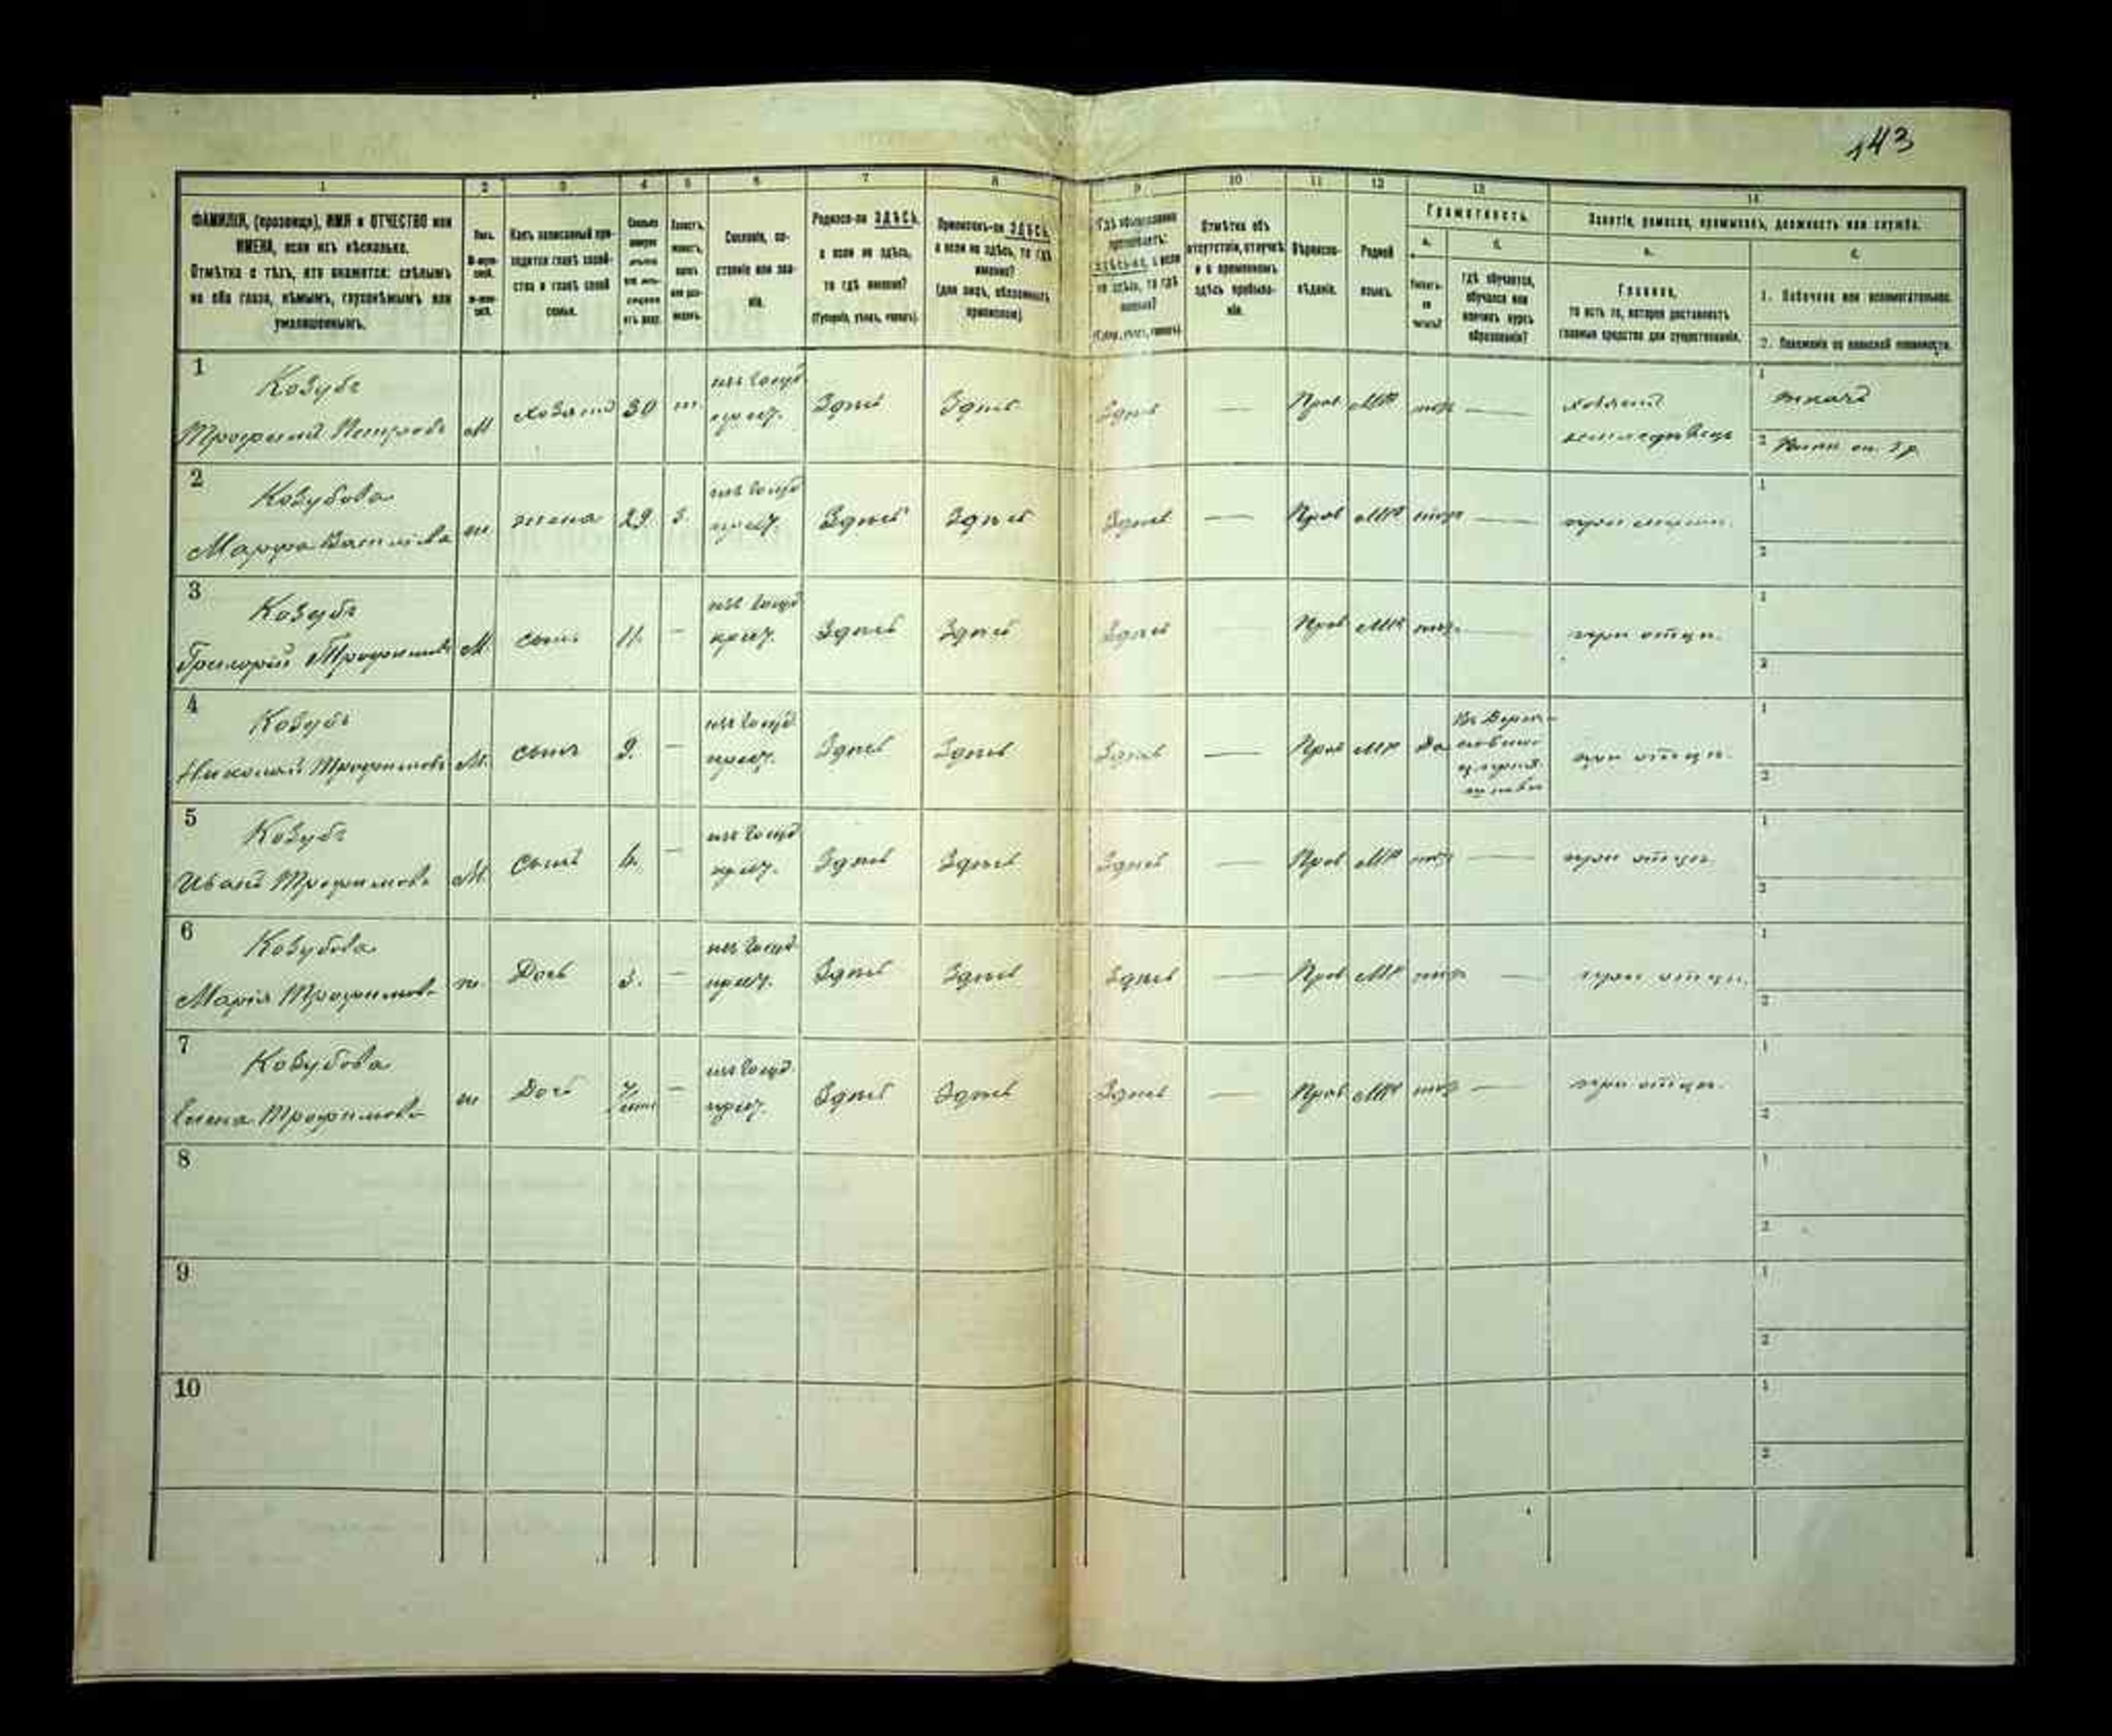 143
1 2 3 4 5 6 7 8 9 10 11 12 13 14
ФАМИЛІЯ, (прозвище), ИМЯ и ОТЧЕСТВО или
ИМЕНА, если ихъ нѣсколько.
Отмѣтка о тѣхъ, кто окажется: слѣпымъ
на оба глаза, нѣмымъ, глухонѣмымъ или
умалишеннымъ.
Полъ.
Какъ записанный при-
ходится главѣ хозяй-
ства и главѣ своей
семьи.
Сословіе, со-
стояніе или зва-
ніе.
Родился-ли ЗДѢСЬ,
а если не здѣсь,
то гдѣ именно?
(Губернія, уѣздъ, городъ).
Приписанъ-ли ЗДѢСЬ,
а если не здѣсь, то гдѣ
именно?
(для лицъ, обязанныхъ
припискою)
Гдѣ обыкновенно
проживаетъ:
здѣсь-ли, а если
не здѣсь, то гдѣ
именно?
Отмѣтка объ
отсутствіи, отлучкѣ
и о временномъ
здѣсь пребыва-
ніи.
Вѣроиспо-
вѣданіе.
Родной
языкъ.
Грамотность.
а.
б.
гдѣ обучается,
обучался или
кончилъ курсъ
образованія?
Занятіе, ремесло, промыселъ, должность или служба.
а.
Главное,
то есть то, которое доставляетъ
главныя средства для существованія.
б.
1. Побочное или вспомогательное.
2. Положеніе по воинской повинности.
1
Козубъ
Трофимъ Петровъ
М
хозяинъ
30
ж.
изъ госуд
крест.
Здѣсь
Здѣсь
Здѣсь
—
Прав
МР
нѣтъ
—
хозяинъ
земледѣлецъ
1
ткачъ
2
2
Козубова
Марфа Васильева
ж
жена
29.
з.
изъ госуд
крест.
Здѣсь
Здѣсь
Здѣсь
—
Прав
МР
нѣтъ
—
при мужѣ.
1
2
3
Козубъ
Григорій Трофимовъ
М.
сынъ
11.
—
изъ госуд
крест.
Здѣсь
Здѣсь
Здѣсь
—
Прав
МР
нѣтъ
—
при отцѣ.
1
2
4
Козубъ
Николай Трофимовъ
М.
сынъ
9.
—
изъ госуд
крест.
Здѣсь
Здѣсь
Здѣсь
—
Прав
МР
Да
при отцѣ.
1
2
5
Козубъ
Иванъ Трофимовъ
М.
Сынъ
6.
—
изъ госуд
крест.
Здѣсь
Здѣсь
Здѣсь
—
Прав
МР
нѣтъ
—
при отцѣ.
1
2
6
Козубова
Марія Трофимова
ж.
Дочь
3.
—
изъ госуд
крест.
Здѣсь
Здѣсь
Здѣсь
—
Прав
МР
нѣтъ
—
при отцѣ.
1
2
7
Козубова
Елена Трофимова
ж
Дочь
—
изъ госуд.
крест.
Здѣсь
Здѣсь
Здѣсь
—
Прав
МР
нѣтъ
—
при отцѣ.
1
2
8
1
2
9
1
2
10
1
2